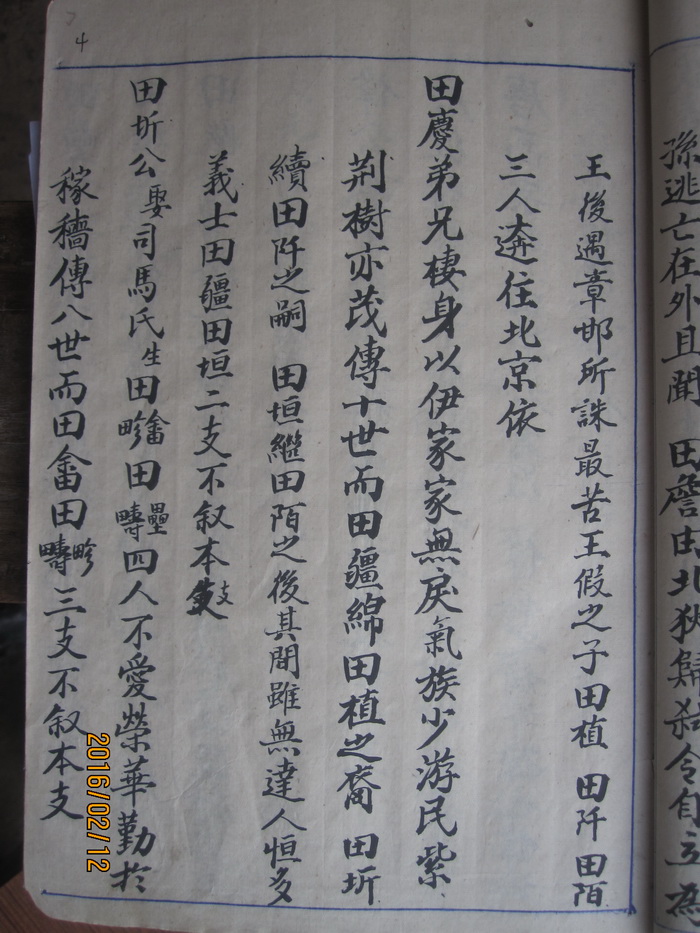 孫逃亡在外且聞 田詹由北狄歸弒令自立為
王後遇章邯所誅最苦王假之子田植 田阡 田陌
三人逩往北京依
田慶弟兄棲身以伊家家無戾氣族少游民紫
荆樹亦茂傳十世而田疆綿田植之裔 田圻
續田阡之嗣 田垣繼田陌之後其間雖無達人恒多
義士田疆田垣二支不叙本支
田圻公娶司馬氏生田畬畛田壘疇四人不愛榮華勤於
稼穡傳八世而田畬田畛疇三支不叙本支
4
2016/02/12